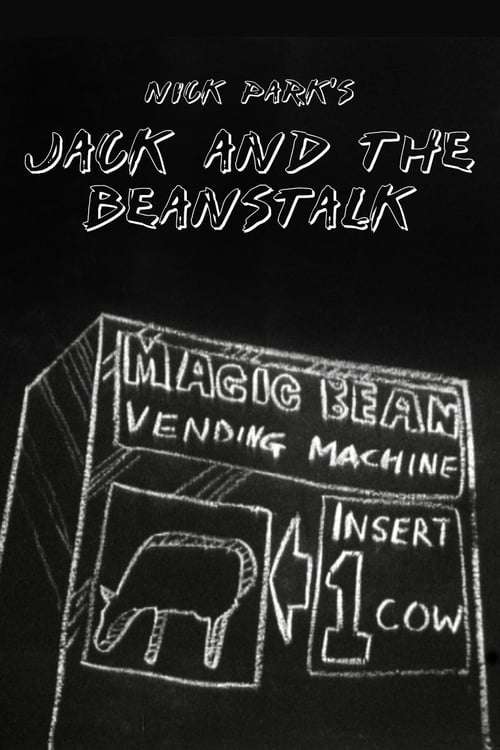 NICK PARK'S
JACK AND THE
BEANSTALK
MAGIC BEAN
VENDING MACHINE
INSERT
1 COW